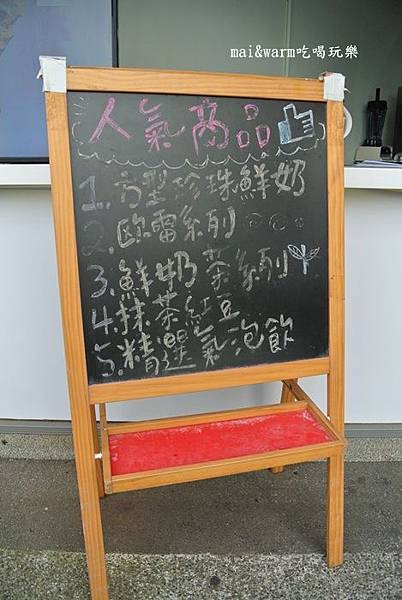 mai&warm吃喝玩樂
人氣商品
1. 方型珍珠鮮奶
2. 歐雷系列
3. 鮮奶茶系列
4. 抹茶紅豆
5. 精選氣泡飲